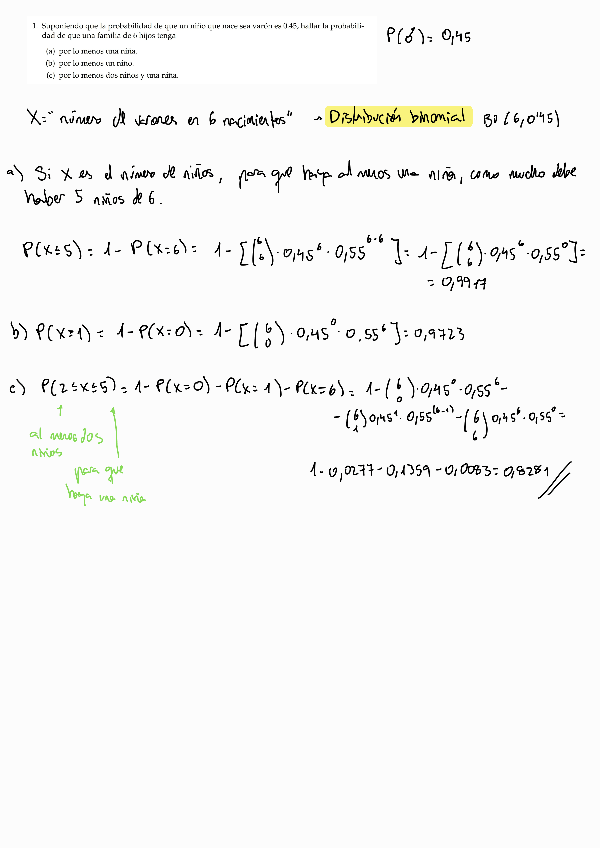 1. Suponiendo que la probabilidad de que un niño que nace sea varón es 0.45, hallar la probabili-
dad de que una familia de 6 hijos tenga
(a) por lo menos una niña.
(b) por lo menos un niño.
(c) por lo menos dos niños y una niña.
P(♂) = 0,45
X="número de varones en 6 nacimientos" → Distribución binomial Bi (6, 0'45)
a) Si X es el número de niños, para que haya al menos una niña, como mucho debe
haber 5 niños de 6.
P(X≤5) = 1 - P(X=6) = 1 - [(6 6) · 0,45^6 · 0,55^6-6] = 1 - [(6 6) · 0,45^6 · 0,55^0] =
= 0,9917
b) P(X≥1) = 1 - P(X=0) = 1 - [(6 0) · 0,45^0 · 0,55^6] = 0,9723
c) P(2≤X≤5) = 1 - P(X=0) - P(X=1) - P(X=6) = 1 - (6 0) · 0,45^0 · 0,55^6 -
- (6 1) 0,45^1 · 0,55^(6-1) - (6 6) 0,45^6 · 0,55^0 =
al menos dos
niños
para que
haya una niña
1 - 0,0277 - 0,1359 - 0,0083 = 0,8281